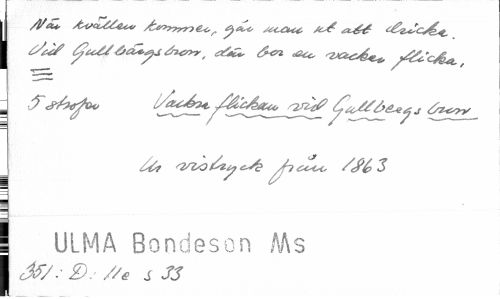 När kvällen kommer, går man ut att dricka.
Vid Gullbergsbron, där bor en vacker flicka.
5 strofer Vackra flickan vid Gullbergs bron
Ur vistryck från 1863
ULMA Bondeson Ms
351:D:11e s 33